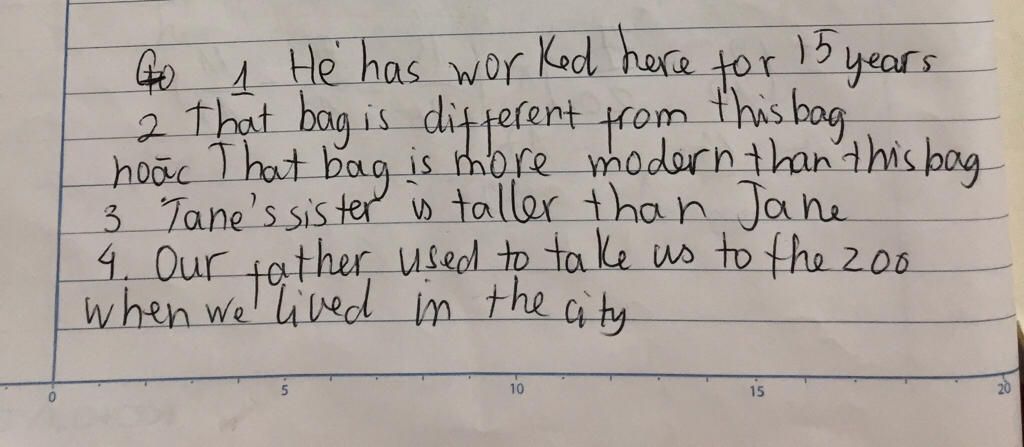 1 He has worked here for 15 years
2 That bag is different from this bag
hoặc That bag is more modern than this bag
3 Jane's sister is taller than Jane
4. Our father used to take us to the zoo
when we lived in the city
0 5 10 15 20